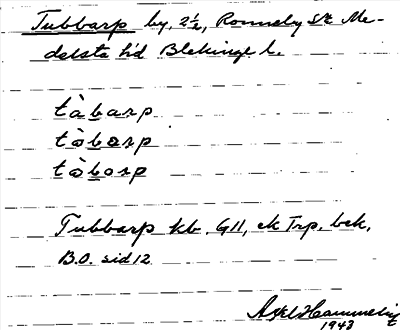 Tubbarp by, 2½, Ronneby sn Me-
delsta hd Blekinge l.
tàbarp
tòbarp
tòborp
Tubbarp kb. G11, ek Trp. bek.
B.O. sid 12
Axel Hammelin
1943